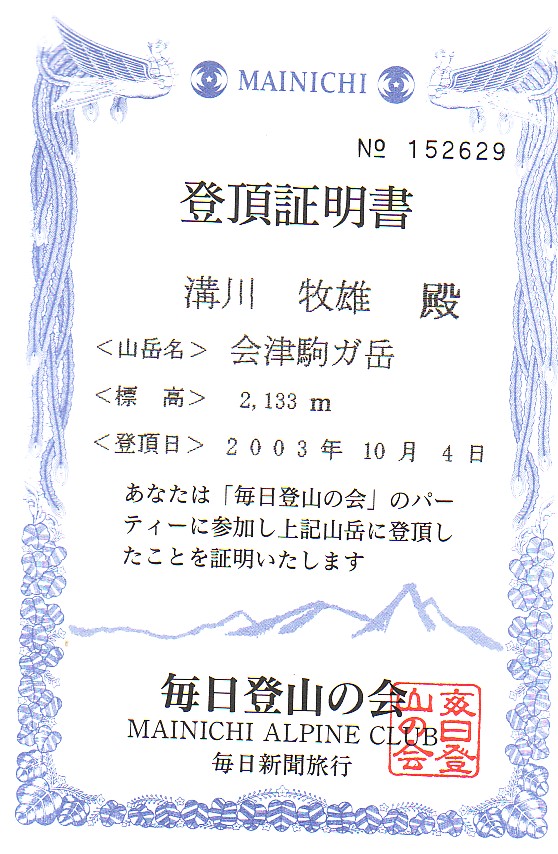 MAINICHI
№ 152629
登頂証明書
溝川 牧雄 殿
＜山岳名＞ 会津駒ガ岳
＜標 高＞ 2,133 m
＜登頂日＞ 2003年 10月 4日
あなたは「毎日登山の会」のパー
ティーに参加し上記山岳に登頂し
たことを証明いたします
毎日登山の会
MAINICHI ALPINE CLUB
毎日新聞旅行
毎日登
山の会